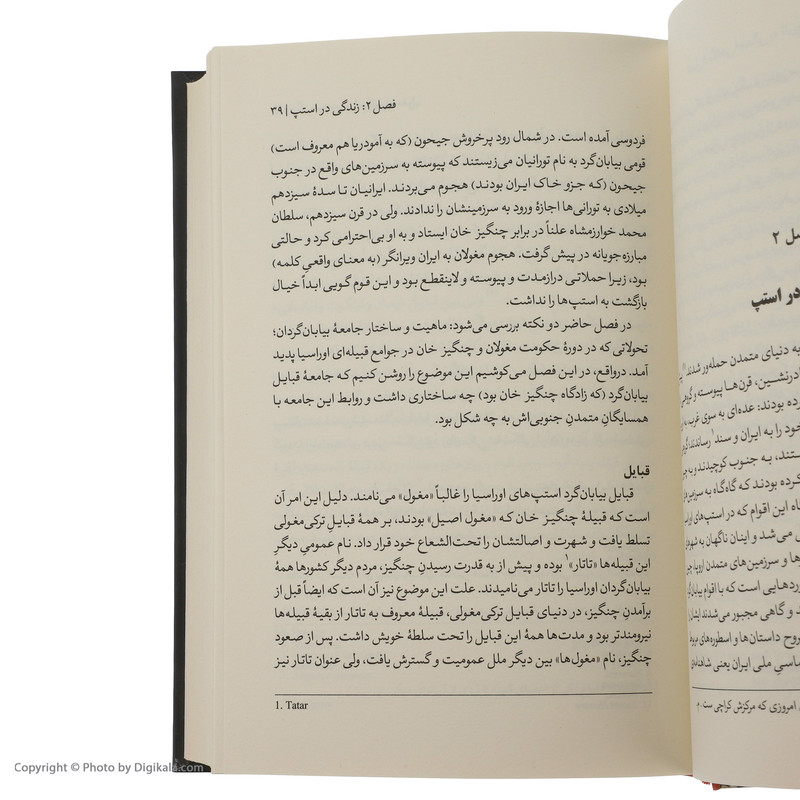 فصل ۲: زندگی در استپ | ۳۹
فردوسی آمده است. در شمال رود پرخروش جیحون (که به آمودریا هم معروف است)
قومی بیابان‌گرد به نام تورانیان می‌زیستند که پیوسته به سرزمین‌های واقع در جنوب
جیحون (که جزو خاک ایران بودند) هجوم می‌بردند. ایرانیان تا سدهٔ سیزدهم
میلادی به تورانی‌ها اجازهٔ ورود به سرزمینشان را ندادند. ولی در قرن سیزدهم، سلطان
محمد خوارزمشاه علناً در برابر چنگیز خان ایستاد و به او بی‌احترامی کرد و حالتی
مبارزه‌جویانه در پیش گرفت. هجوم مغولان به ایران ویرانگر (به معنای واقعیِ کلمه)
بود، زیرا حملاتی درازمدت و پیوسته و لاینقطع بود و این قوم گویی ابداً خیال
بازگشت به استپ‌ها را نداشت.
در فصل حاضر دو نکته بررسی می‌شود: ماهیت و ساختار جامعهٔ بیابان‌گردان؛
تحولاتی که در دورهٔ حکومت مغولان و چنگیز خان در جوامع قبیله‌ای اوراسیا پدید
آمد. درواقع، در این فصل می‌کوشیم این موضوع را روشن کنیم که جامعهٔ قبایل
بیابان‌گرد (که زادگاه چنگیز خان بود) چه ساختاری داشت و روابط این جامعه با
همسایگانِ متمدنِ جنوبی‌اش به چه شکل بود.
قبایل
قبایل بیابان‌گرد استپ‌های اوراسیا را غالباً «مغول» می‌نامند. دلیل این امر آن
است که قبیلهٔ چنگیز خان که «مغول اصیل» بودند، بر همهٔ قبایلِ ترکی‌مغولی
تسلط یافت و شهرت و اصالتشان را تحت‌الشعاع خود قرار داد. نام عمومیِ دیگرِ
این قبیله‌ها «تاتار»۱ بوده و پیش از به قدرت رسیدنِ چنگیز، مردم دیگر کشورها همهٔ
بیابان‌گردان اوراسیا را تاتار می‌نامیدند. علت این موضوع نیز آن است که ایضاً قبل از
برآمدنِ چنگیز، در دنیای قبایل ترکی‌مغولی، قبیلهٔ معروف به تاتار از بقیهٔ قبیله‌ها
نیرومندتر بود و مدت‌ها همهٔ این قبایل را تحت سلطهٔ خویش داشت. پس از صعود
چنگیز، نام «مغول‌ها» بین دیگر ملل عمومیت و گسترش یافت، ولی عنوان تاتار نیز
1. Tatar
۲
در استپ
به دنیای متمدن حمله‌ور شدند
قرن‌ها پیوسته و
بودند: عده‌ای به سوی غرب،
خود را به ایران و سند رساندند؛
به جنوب کوچیدند و
کرده بودند که گاه‌گاه به
این اقوام که در استپ‌های
می‌شد و اینان ناگهان به
و سرزمین‌های متمدن اروپا،
است که با اقوام
و گاهی مجبور می‌شدند ایشان
داستان‌ها و اسطوره‌های
ملی ایران یعنی
امروزی که مرکزش کراچی ست. م
Copyright © Photo by Digikala.com